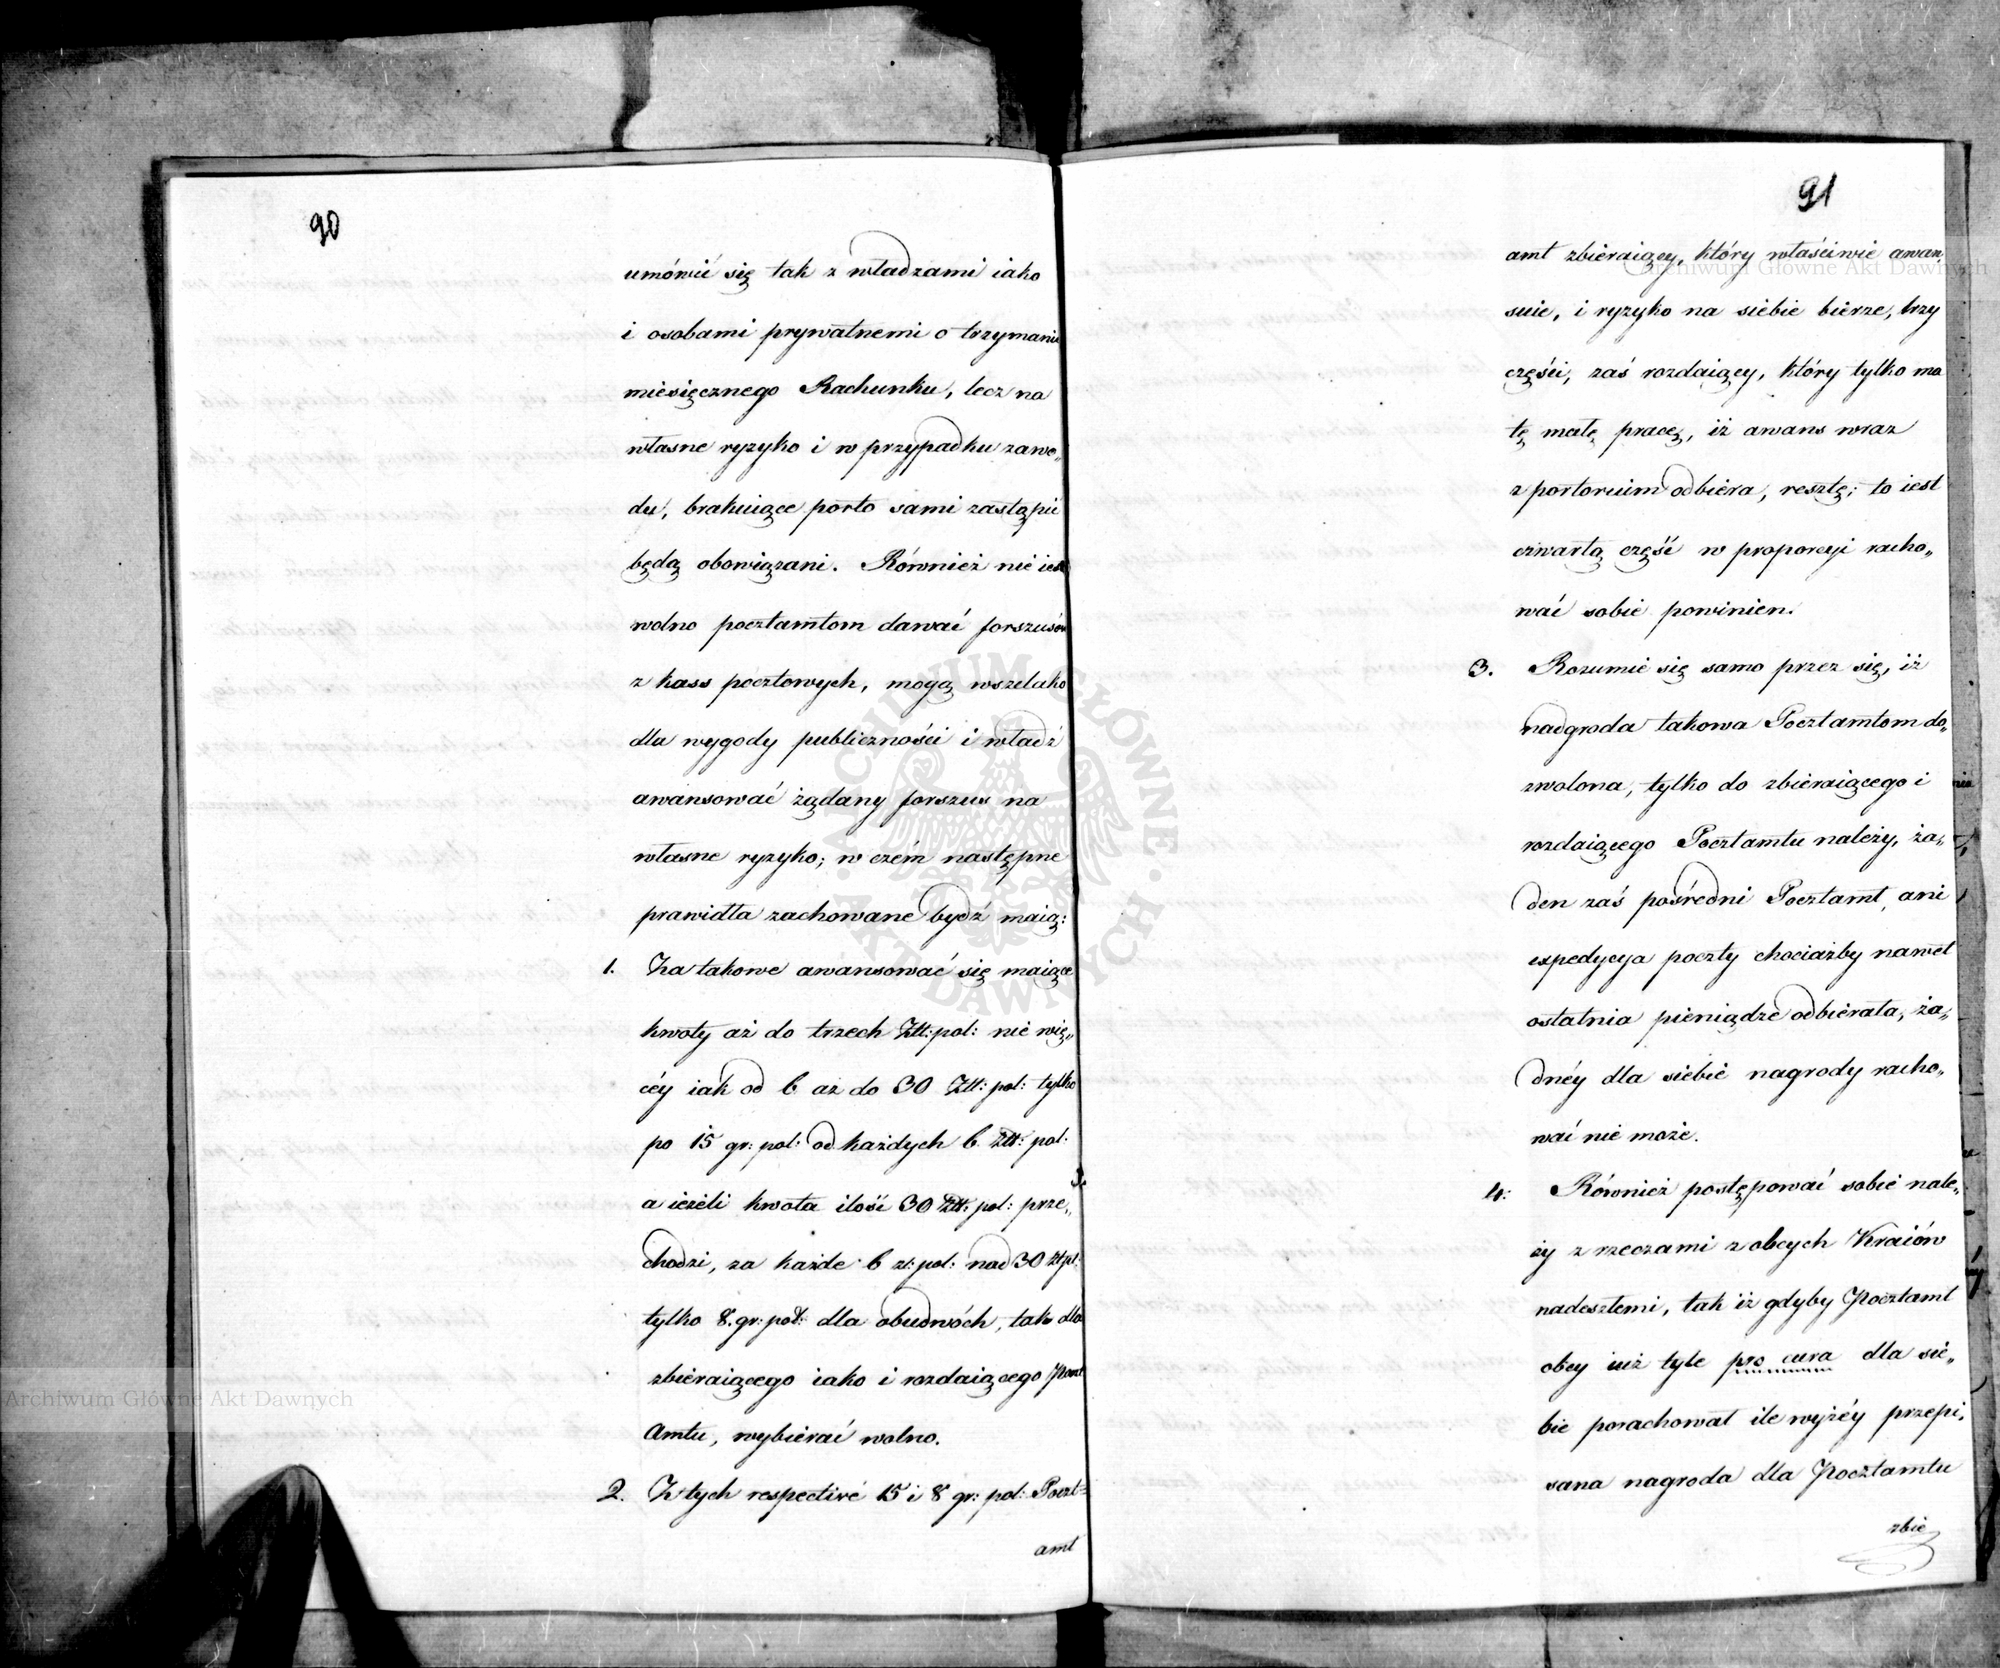 90
umówić się tak z władzami iako
i osobami prywatnemi o trzymanie
miesięcznego Rachunku, lecz na
własne ryzyko i w przypadku zawo„
du, brakuiące porto sami zastąpić
będą obowiązani. Również nie iest
wolno pocztamtom dawać forszusów
z kass pocztowych, mogą wszelako
dla wygody publiczności i władz
awansować żądany forszus na
własne ryzyko; w czém następne
prawidła zachowane bydź maią:
1. Za takowe awansować się maiące
kwoty aż do trzech Złł: pol: nie wię„
céy iak od 6 aż do 30 Złł: pol: tylko
po 15 gr: pol: od każdych 6 Złł: pol:
a ieżeli kwota ilość 30 Złł: pol: prze„
chodzi, za każde 6 zł: pol: nad 30 złpl:
tylko 8. gr: pol: dla obudwóch, tak dla
zbieraiącego iako i rozdaiącego Poczt
Amtu, wybierać wolno.
2. Z tych respective 15 i 8 gr: pol: Poczt=
amt
91
amt zbieraiący, który właściwie awan„
suie, i ryzyko na siebie bierze, trzy
części, zaś rozdaiący, który tylko ma
tę małę pracę, iż awans wraz
z portorium odbiera, resztę; to iest
czwartą część w proporcyi racho„
wać sobie powinien.
3. Rozumie się samo przez się, iż
nadgroda takowa Pocztamtom do„
zwolona, tylko do zbieraiącego i
rozdaiącego Pocztamtu należy, ża„
den zaś pośredni Pocztamt, ani
expedycya poczty chociażby nawet
ostatnia pieniądze odbierała, ża„
dnéy dla siebie nagrody racho„
wać nie może.
4: Również postępować sobie nale„
ży z rzeczami z obcych Kraiów
nadeszłemi, tak iż gdyby Pocztamt
obcy iuż tyle pro cura dla sie„
bie porachował ile wyżéy przepi„
sana nagroda dla Pocztamtu
zbie
Archiwum Główne Akt Dawnych
Archiwum Główne Akt Dawnych
ARCHIWUM GŁÓWNE AKT DAWNYCH